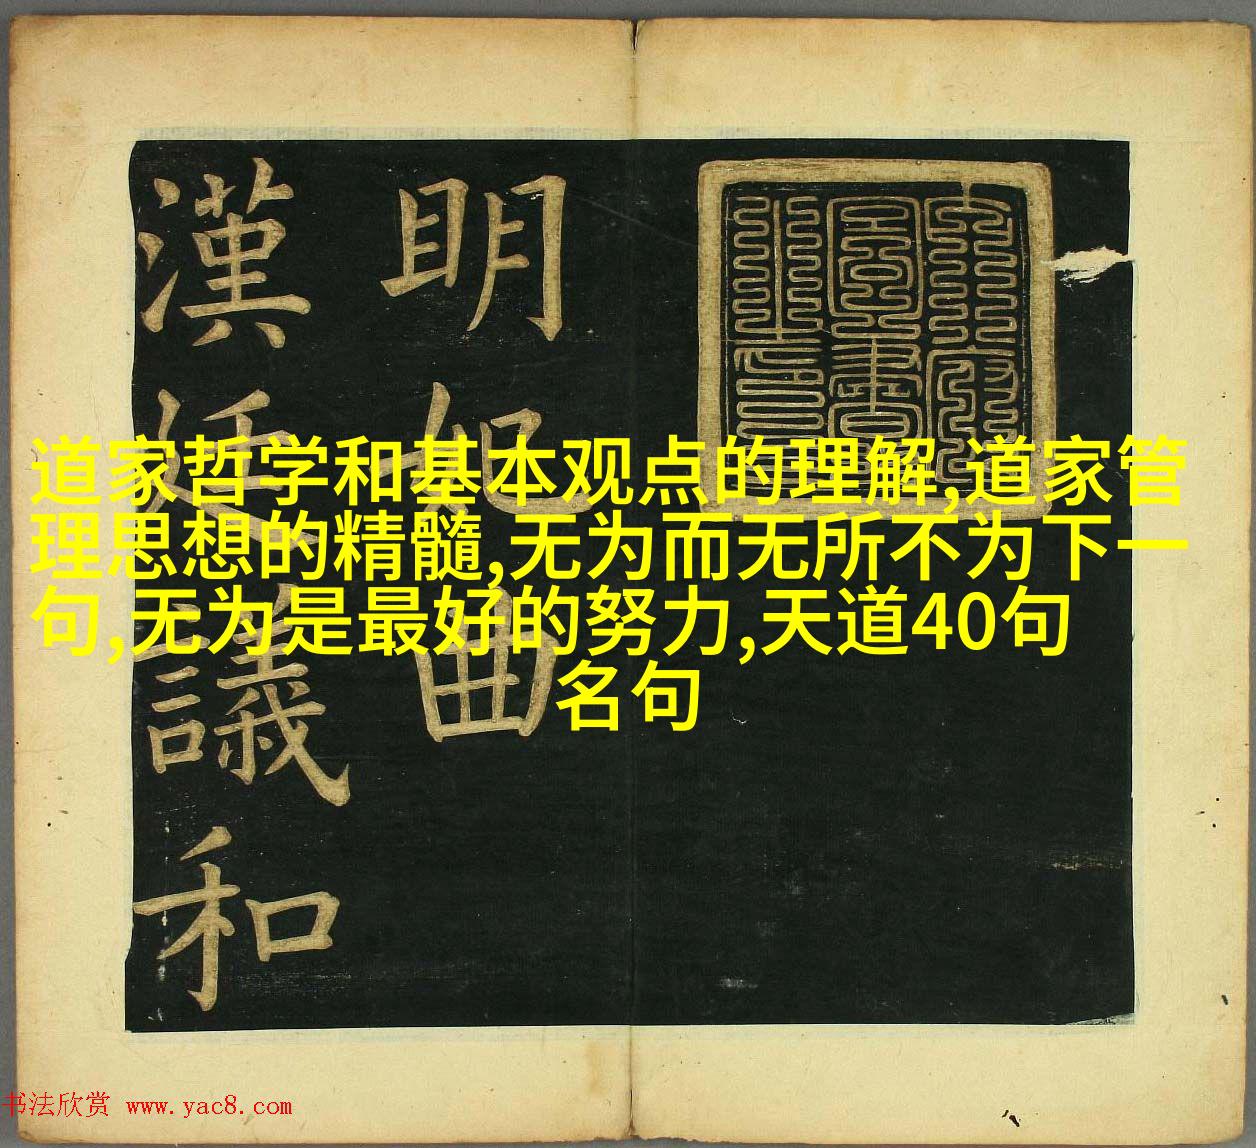 道家哲学和基本观点的理解,道家管
理思想的精髓,无为而无所不为下一
句,无为是最好的努力,天道40句
名句
明妃曲
漢廷議和
书法欣赏 www.yac8.com